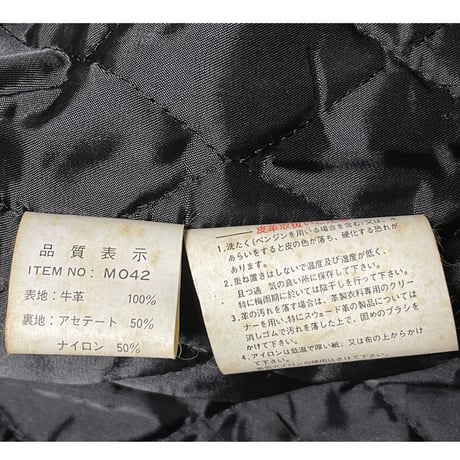 品質表示
ITEM NO: M042
表地: 牛革 100%
裏地: アセテート 50%
ナイロン 50%
皮革取扱
1. 洗たく(ベンジンを用いる場合を含む)又は、水
あらいをすると皮の色が落ち、硬化する恐れが
あります。
2. 重ね置きはしないで温度及び湿度が低く、
且つ通気の良い所に保存して下さい。
特に梅雨期に於いては陰干しを行って下さい。
3. 革の汚れを落す場合は、革製衣料専用のクリー
ナーを用い、特にスウェード革の製品については
消しゴムで汚れを落した上で、固めのブラシを
かけて下さい。
4. アイロンは低温で厚い紙、又は布の上からかけ
て下さい。